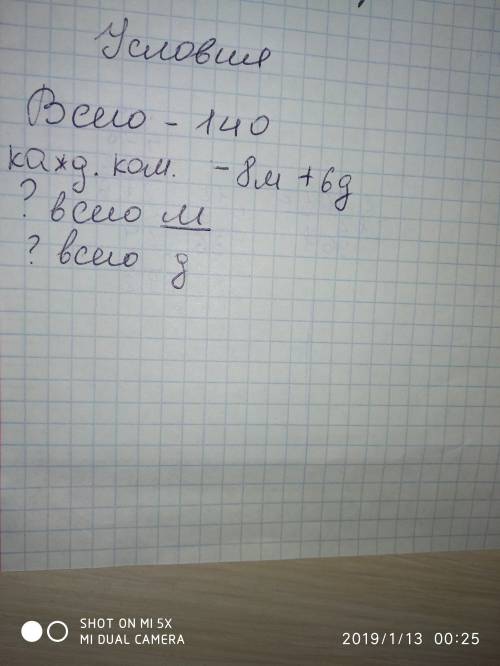 Условия
Всего - 140
кажд. ком. - 8м + 6д
? всего м
? всего д
SHOT ON MI 5X
MI DUAL CAMERA
2019/1/13 00:25